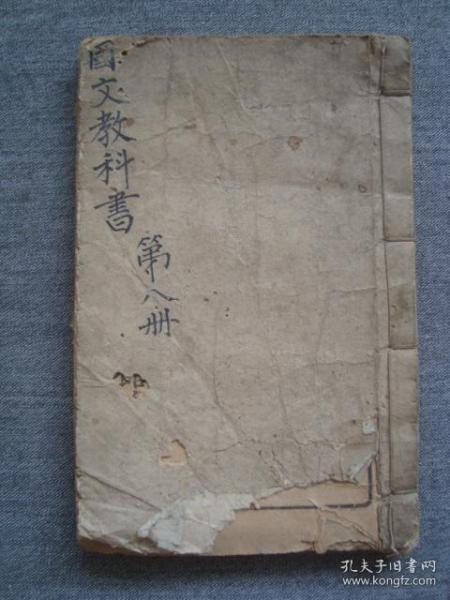 國文教科書
第八册
孔夫子旧書网
www.kongfz.com